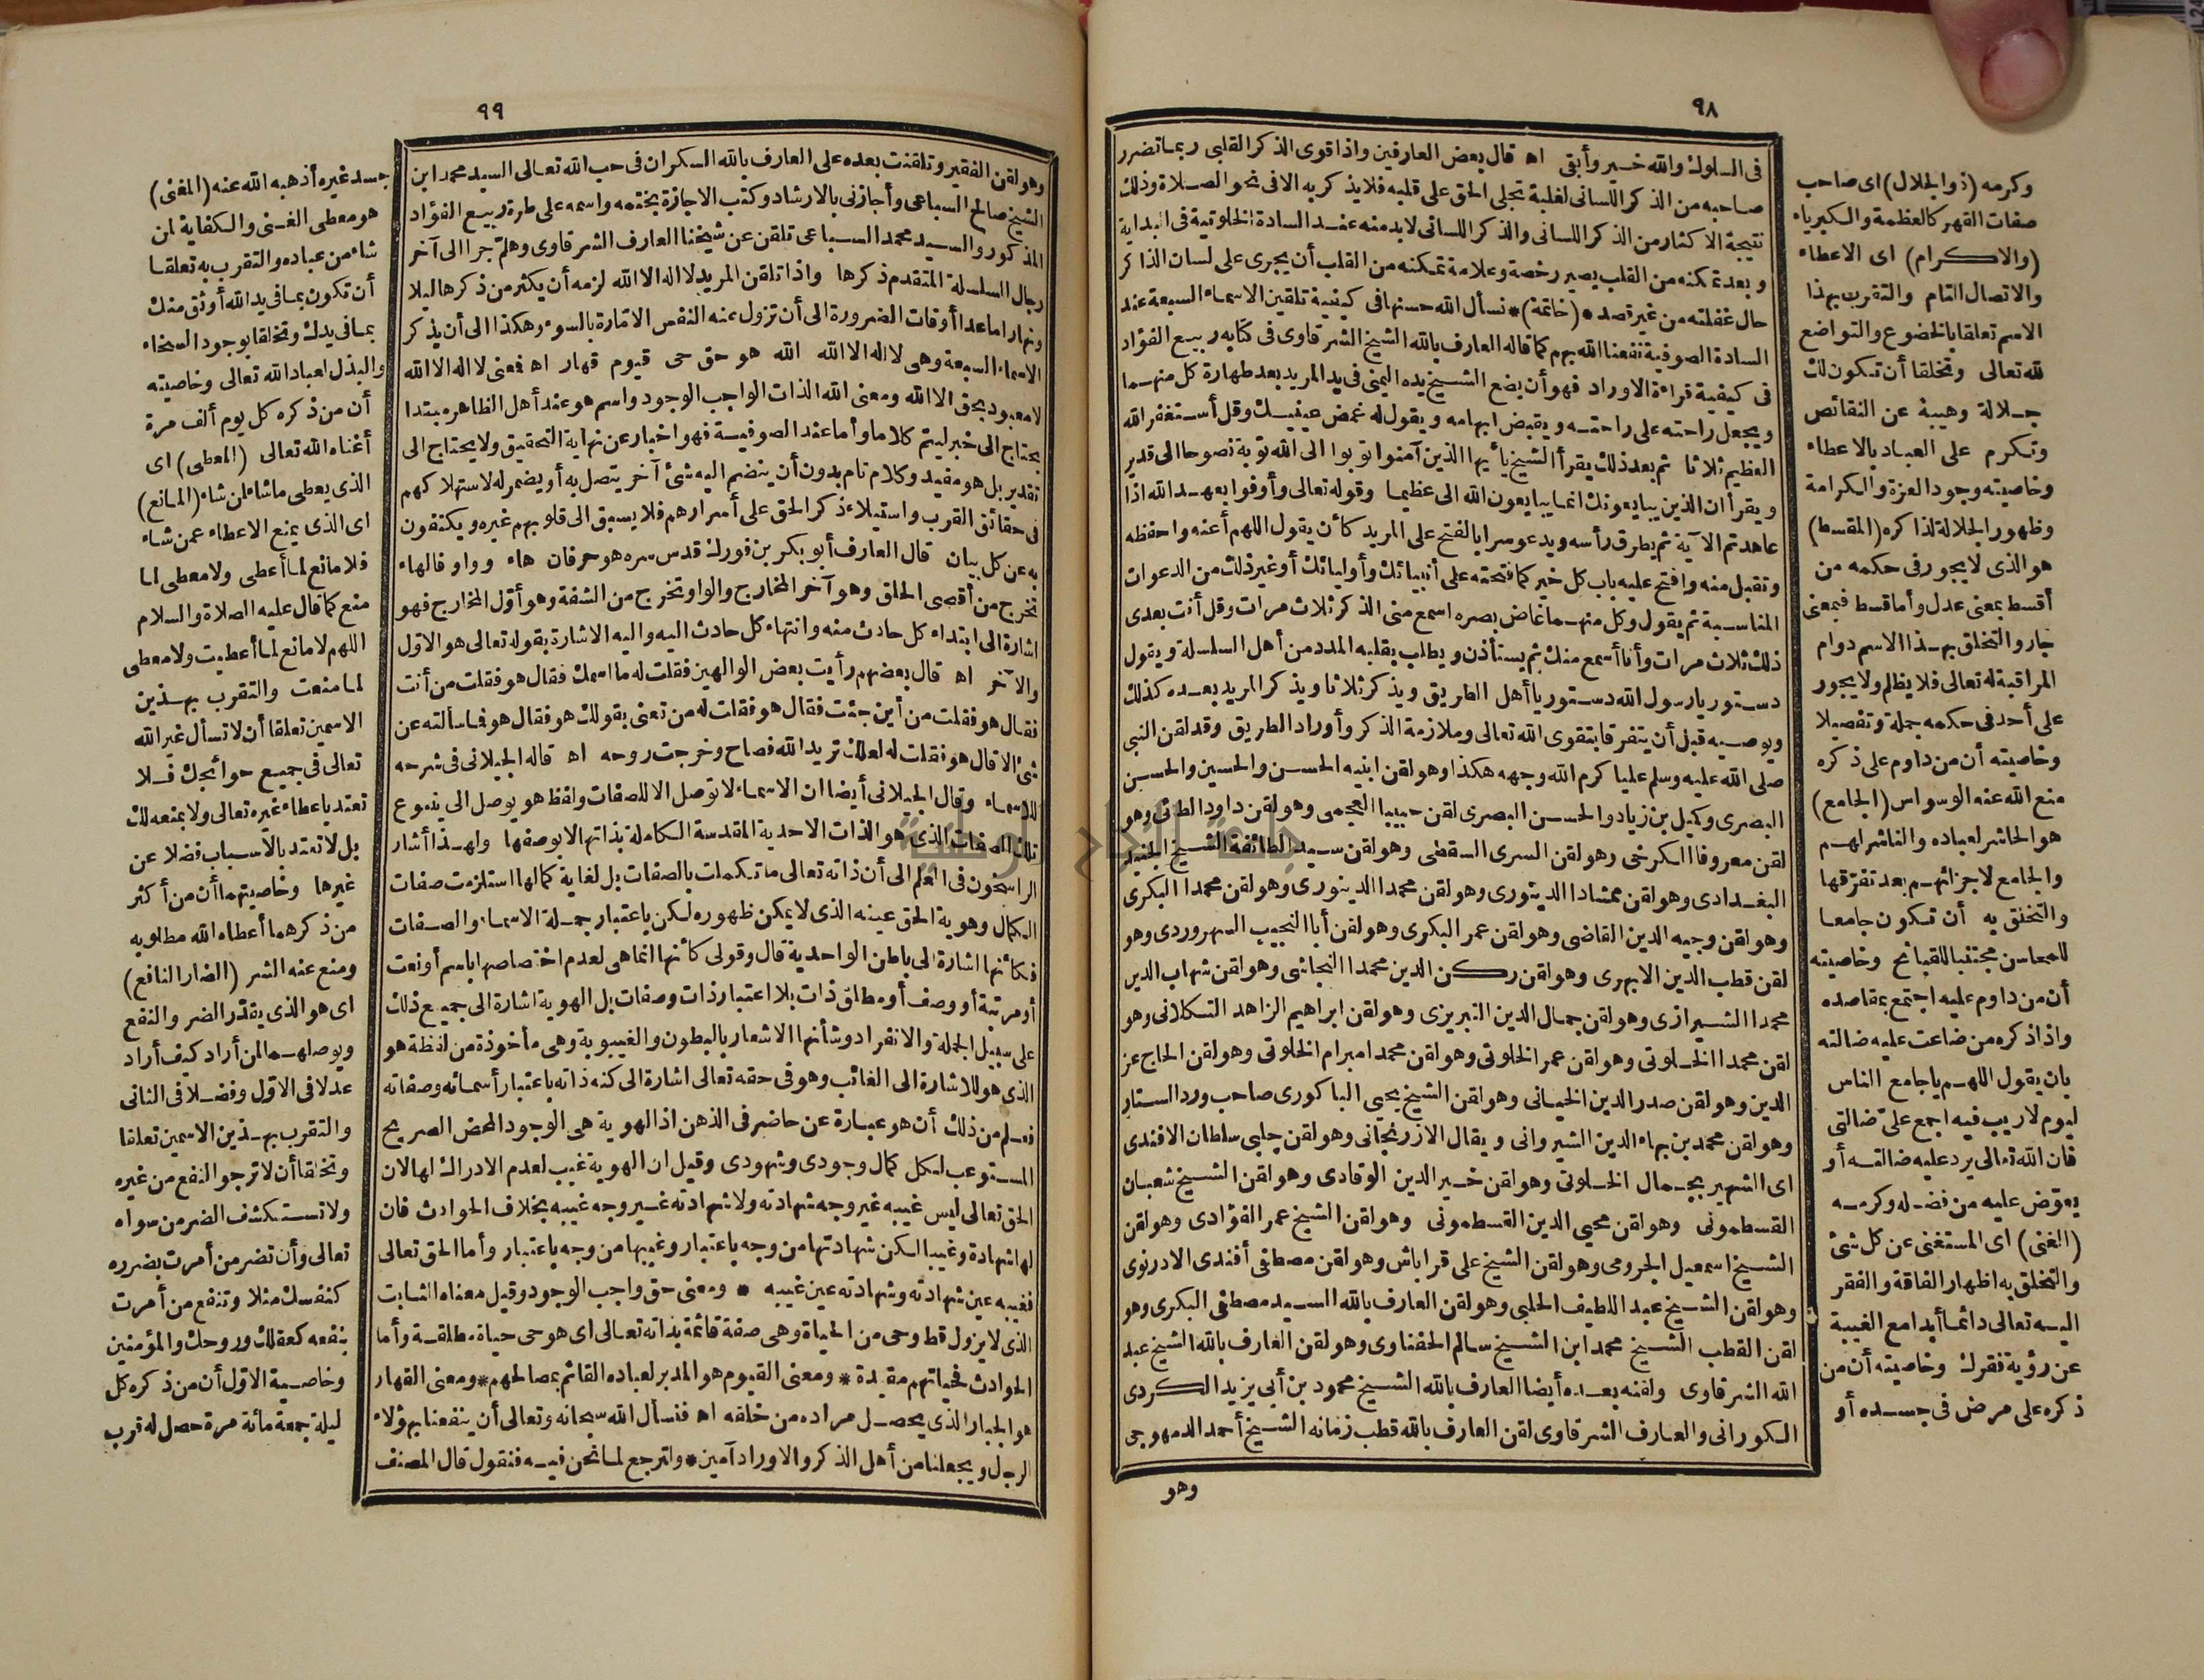 ٩٨
فى السلوك والله خير وأبقى اه قال بعض العارفين واذا قوى الذكر القلبى ربما تضرر
صاحبه من الذكر اللسانى لغلبة تجلى الحق على قلبه فلا يذكر به الا فى نحو الصلاة وذلك
نتيجة الاكثار من الذكر اللسانى والذكر اللسانى لابد منه عند السادة الخلوتية فى البداية
وبعد تمكنه من القلب يصير رخصة وعلامة تمكنه من القلب أن يجرى على لسان الذاكر
حال غفلته من غير قصد * (خاتمة) * نسأل الله حسنها فى كيفية تلقين الاسماء السبعة عند
السادة الصوفية نفعنا الله بهم كما قاله العارف بالله الشيخ الشرقاوى فى كتابه ربيع الفؤاد
فى كيفية قراءة الاوراد فهو أن يضع الشيخ يده اليمنى فى يد المريد بعد طهارة كل منهما
ويجعل راحته على راحته ويقبض ابهامه ويقول له غمض عينيك وقل أستغفر الله
العظيم ثلاثا ثم بعد ذلك يقرأ الشيخ يا أيها الذين آمنوا توبوا الى الله توبة نصوحا الى قدير
ويقرأ ان الذين يبايعونك انما يبايعون الله الى عظيما وقوله تعالى وأوفوا بعهد الله اذا
عاهدتم الآية ثم يطرق رأسه ويدعو سرا بالفتح على المريد كأن يقول اللهم أعنه واحفظه
وتقبل منه وافتح عليه باب كل خير كما فتحته على أنبيائك وأوليائك أو غير ذلك من الدعوات
المناسبة ثم يقول وكل منهما غاض بصره اسمع منى الذكر ثلاث مرات وقل أنت بعدى
ذلك ثلاث مرات وأنا أسمع منك ثم يستأذن ويطلب بقلبه المدد من أهل السلسلة ويقول
دستور يا رسول الله دستور يا أهل الطريق ويذكر ثلاثا ويذكر المريد بعده كذلك
ويوصيه قبل أن يتفرقا بتقوى الله تعالى وملازمة الذكر وأوراد الطريق وقد لقن النبى
صلى الله عليه وسلم عليا كرم الله وجهه هكذا وهو لقن ابنيه الحسن والحسين والحسن
البصرى وكميل بن زياد والحسن البصرى لقن حبيبا العجمى وهو لقن داود الطائى وهو
لقن معروفا الكرخى وهو لقن السرى السقطى وهو لقن سيد الطائفة الشيخ الجنيد
البغدادى وهو لقن ممشادا الدينورى وهو لقن محمدا الدينورى وهو لقن محمدا البكرى
وهو لقن وجيه الدين القاضى وهو لقن عمر البكرى وهو لقن أبا النجيب السهروردى وهو
لقن قطب الدين الابهرى وهو لقن ركن الدين محمدا النجاشى وهو لقن شهاب الدين
محمدا الشيرازى وهو لقن جمال الدين التبريزى وهو لقن ابراهيم الزاهد التكلانى وهو
لقن محمدا الخلوتى وهو لقن عمر الخلوتى وهو لقن محمد امبرام الخلوتى وهو لقن الحاج عز
الدين وهو لقن صدر الدين الخيانى وهو لقن الشيخ يحيى الباكورى صاحب ورد الستار
وهو لقن محمد بن بهاء الدين الشيروانى ويقال الازرنجانى وهو لقن چلبى سلطان الافندى
اى الشهير بجمال الخلوتى وهو لقن خير الدين الوقادى وهو لقن الشيخ شعبان
القسطمونى وهو لقن محيى الدين القسطمونى وهو لقن الشيخ عمر الفؤادى وهو لقن
الشيخ اسمعيل الجرومى وهو لقن الشيخ على قراباش وهو لقن مصطفى أفندى الادرنوى
وهو لقن الشيخ عبد اللطيف الحلبى وهو لقن العارف بالله السيد مصطفى البكرى وهو
لقن القطب الشيخ محمد ابن الشيخ سالم الحفناوى وهو لقن العارف بالله الشيخ عبد
الله الشرقاوى ولقنه بعده أيضا العارف بالله الشيخ محمود بن أبى يزيد الكردى
الكورانى والعارف الشرقاوى لقن العارف بالله قطب زمانه الشيخ أحمد الدمهوجى
وهو
وكرمه (ذو الجلال) اى صاحب
صفات القهر كالعظمة والكبرياء
(والاكرام) اى الاعطاء
والاتصال التام والتقرب بهذا
الاسم تعلقا بالخضوع والتواضع
لله تعالى وتخلقا أن تكون لك
جلالة وهيبة عن النقائص
وتكرم على العباد بالاعطاء
وخاصيته وجود العزة والكرامة
وظهور الجلالة لذاكره (المقسط)
هو الذى لا يجور فى حكمه من
أقسط بمعنى عدل وأما قسط فبمعنى
جار والتخلق بهذا الاسم دوام
المراقبة له تعالى فلا يظلم ولا يجور
على أحد فى حكمه جملة وتفصيلا
وخاصيته أن من داوم على ذكره
منع الله عنه الوسواس (الجامع)
هو الحاشر لعباده والناشر لهم
والجامع لاجزائهم بعد تفرّقها
والتخلق به أن تكون جامعا
للمحاسن مجتنبا للقبائح وخاصيته
أن من داوم عليه اجتمع بمقاصده
واذا ذكره من ضاعت عليه ضالته
بان يقول اللهم يا جامع الناس
ليوم لا ريب فيه اجمع علىّ ضالتى
فان الله تعالى يرد عليه ضالته أو
يعوّض عليه من فضله وكرمه
(الغنى) اى المستغنى عن كل شئ
والتخلق به اظهار الفاقة والفقر
اليه تعالى دائما أبدا مع الغيبة
عن رؤية فقرك وخاصيته أن من
ذكره على مرض فى جسده أو
٩٩
وهو لقن الفقير وتلقنت بعده على العارف بالله السكران فى حب الله تعالى السيد محمد ابن
الشيخ صالح السباعى وأجازنى بالارشاد وكتب الاجازة بختمه واسمه على طرة ربيع الفؤاد
المذكور والسيد محمد السباعى تلقن عن شيخنا العارف الشرقاوى وهلمّ جرا الى آخر
رجال السلسلة المتقدم ذكرها واذا تلقن المريد لا اله الا الله لزمه أن يكثر من ذكرها ليلا
ونهارا ما عدا أوقات الضرورة الى أن تزول عنه النفس الامّارة بالسوء وهكذا الى أن يذكر
الاسماء السبعة وهى لا اله الا الله الله هو حق حى قيوم قهار اه فمعنى لا اله الا الله
لا معبود بحق الا الله ومعنى الله الذات الواجب الوجود واسم هو عند أهل الظاهر مبتدا
يحتاج الى خبر ليتم كلاما وأما عند الصوفية فهو اخبار عن نهاية التحقيق ولا يحتاج الى
تقدير بل هو مفيد وكلام تام بدون أن ينضم اليه شئ آخر يتصل به أو يضمر له لاستهلاكهم
فى حقائق القرب واستيلاء ذكر الحق على أسرارهم فلا يسبق الى قلوبهم غيره ويكتفون
به عن كل بيان قال العارف أبو بكر بن فورك قدس سره هو حرفان هاء وواو فالهاء
تخرج من أقصى الحلق وهو آخر المخارج والواو تخرج من الشفة وهو أوّل المخارج فهو
اشارة الى ابتداء كل حادث منه وانتهاء كل حادث اليه واليه الاشارة بقوله تعالى هو الاول
والآخر اه قال بعضهم رأيت بعض الوالهين فقلت له ما اسمك فقال هو فقلت من أنت
فقال هو فقلت من أين جئت فقال هو فقلت له من تعنى بقولك هو فقال هو فما سألته عن
شئ الا قال هو فقلت له لعلك تريد الله فصاح وخرجت روحه اه قاله الجيلانى فى شرحه
للاسماء وقال الجيلانى أيضا ان الاسماء لا توصل الا للصفات ولفظ هو يوصل الى ينبوع
تلك الصفات الذى هو الذات الاحدية المقدسة الكاملة بذاتها لا بوصفها ولهذا أشار
الراسخون فى العلم الى أن ذاته تعالى ما تكملت بالصفات بل لغاية كمالها استلزمت صفات
الكمال وهوية الحق عينه الذى لا يمكن ظهوره لكن باعتبار جملة الاسماء والصفات
فكأنها اشارة الى باطن الواحدية قال وقولى كأنها انما هى لعدم اختصاصها باسم أو نعت
أو مرتبة أو وصف أو مطلق ذات بلا اعتبار ذات وصفات بل الهوية اشارة الى جميع ذلك
على سبيل الجملة والانفراد وشأنها الاشعار بالبطون والغيبوبة وهى مأخوذة من لفظة هو
الذى هو للاشارة الى الغائب وهو فى حقه تعالى اشارة الى كنه ذاته باعتبار أسمائه وصفاته
فعلم من ذلك أن هو عبارة عن حاضر فى الذهن اذ الهوية هى الوجود المحض الصريح
المستوعب لكل كمال وجودى وشهودى وقيل ان الهوية غيب لعدم الادراك لها لان
الحق تعالى ليس غيبه غير وجه شهادته ولا شهادته غير وجه غيبه بخلاف الحوادث فان
لها شهادة وغيبا لكن شهادتها من وجه باعتبار وغيبها من وجه باعتبار وأما الحق تعالى
فغيبه عين شهادته وشهادته عين غيبه * ومعنى حق واجب الوجود وقيل معناه الثابت
الذى لا يزول قط وحى من الحياة وهى صفة قائمة بذاته تعالى اى هو حى حياة مطلقة وأما
الحوادث فحياتهم مقيدة * ومعنى القيوم هو المدبر لعباده القائم بمصالحهم * ومعنى القهار
هو الجبار الذى يحصل مراده من خلقه اه فنسأل الله سبحانه وتعالى أن ينفعنا بهؤلاء
الرجال ويجعلنا من أهل الذكر والاوراد آمين * ولنرجع لما نحن فيه فنقول قال المصنف
جسد غيره أذهبه الله عنه (المغنى)
هو معطى الغنى والكفاية لمن
شاء من عباده والتقرب به تعلقا
أن تكون بما فى يد الله أوثق منك
بما فى يدك وتخلقا بوجود السخاء
والبذل لعباد الله تعالى وخاصيته
أن من ذكره كل يوم ألف مرة
أغناه الله تعالى (المعطى) اى
الذى يعطى ما شاء لمن شاء (المانع)
اى الذى يمنع الاعطاء عمن شاء
فلا مانع لما أعطى ولا معطى لما
منع كما قال عليه الصلاة والسلام
اللهم لا مانع لما أعطيت ولا معطى
لما منعت والتقرب بهذين
الاسمين تعلقا أن لا تسأل غير الله
تعالى فى جميع حوائجك فلا
تعتد باعطاء غيره تعالى ولا بمنعه لك
بل لا تعتد بالاسباب فضلا عن
غيرها وخاصيتهما أن من أكثر
من ذكرهما أعطاه الله مطلوبه
ومنع عنه الشر (الضار النافع)
اى هو الذى يقدّر الضر والنفع
ويوصلهما لمن أراد كيف أراد
عدلا فى الاوّل وفضلا فى الثانى
والتقرب بهذين الاسمين تعلقا
وتخلقا أن لا ترجو النفع من غيره
ولا تستكشف الضر من سواه
تعالى وأن تضر من أمرت بضرره
كنفسك مثلا وتنفع من أمرت
بنفعه كعقلك وروحك والمؤمنين
وخاصية الاوّل أن من ذكره كل
ليلة جمعة مائة مرة حصل له قرب